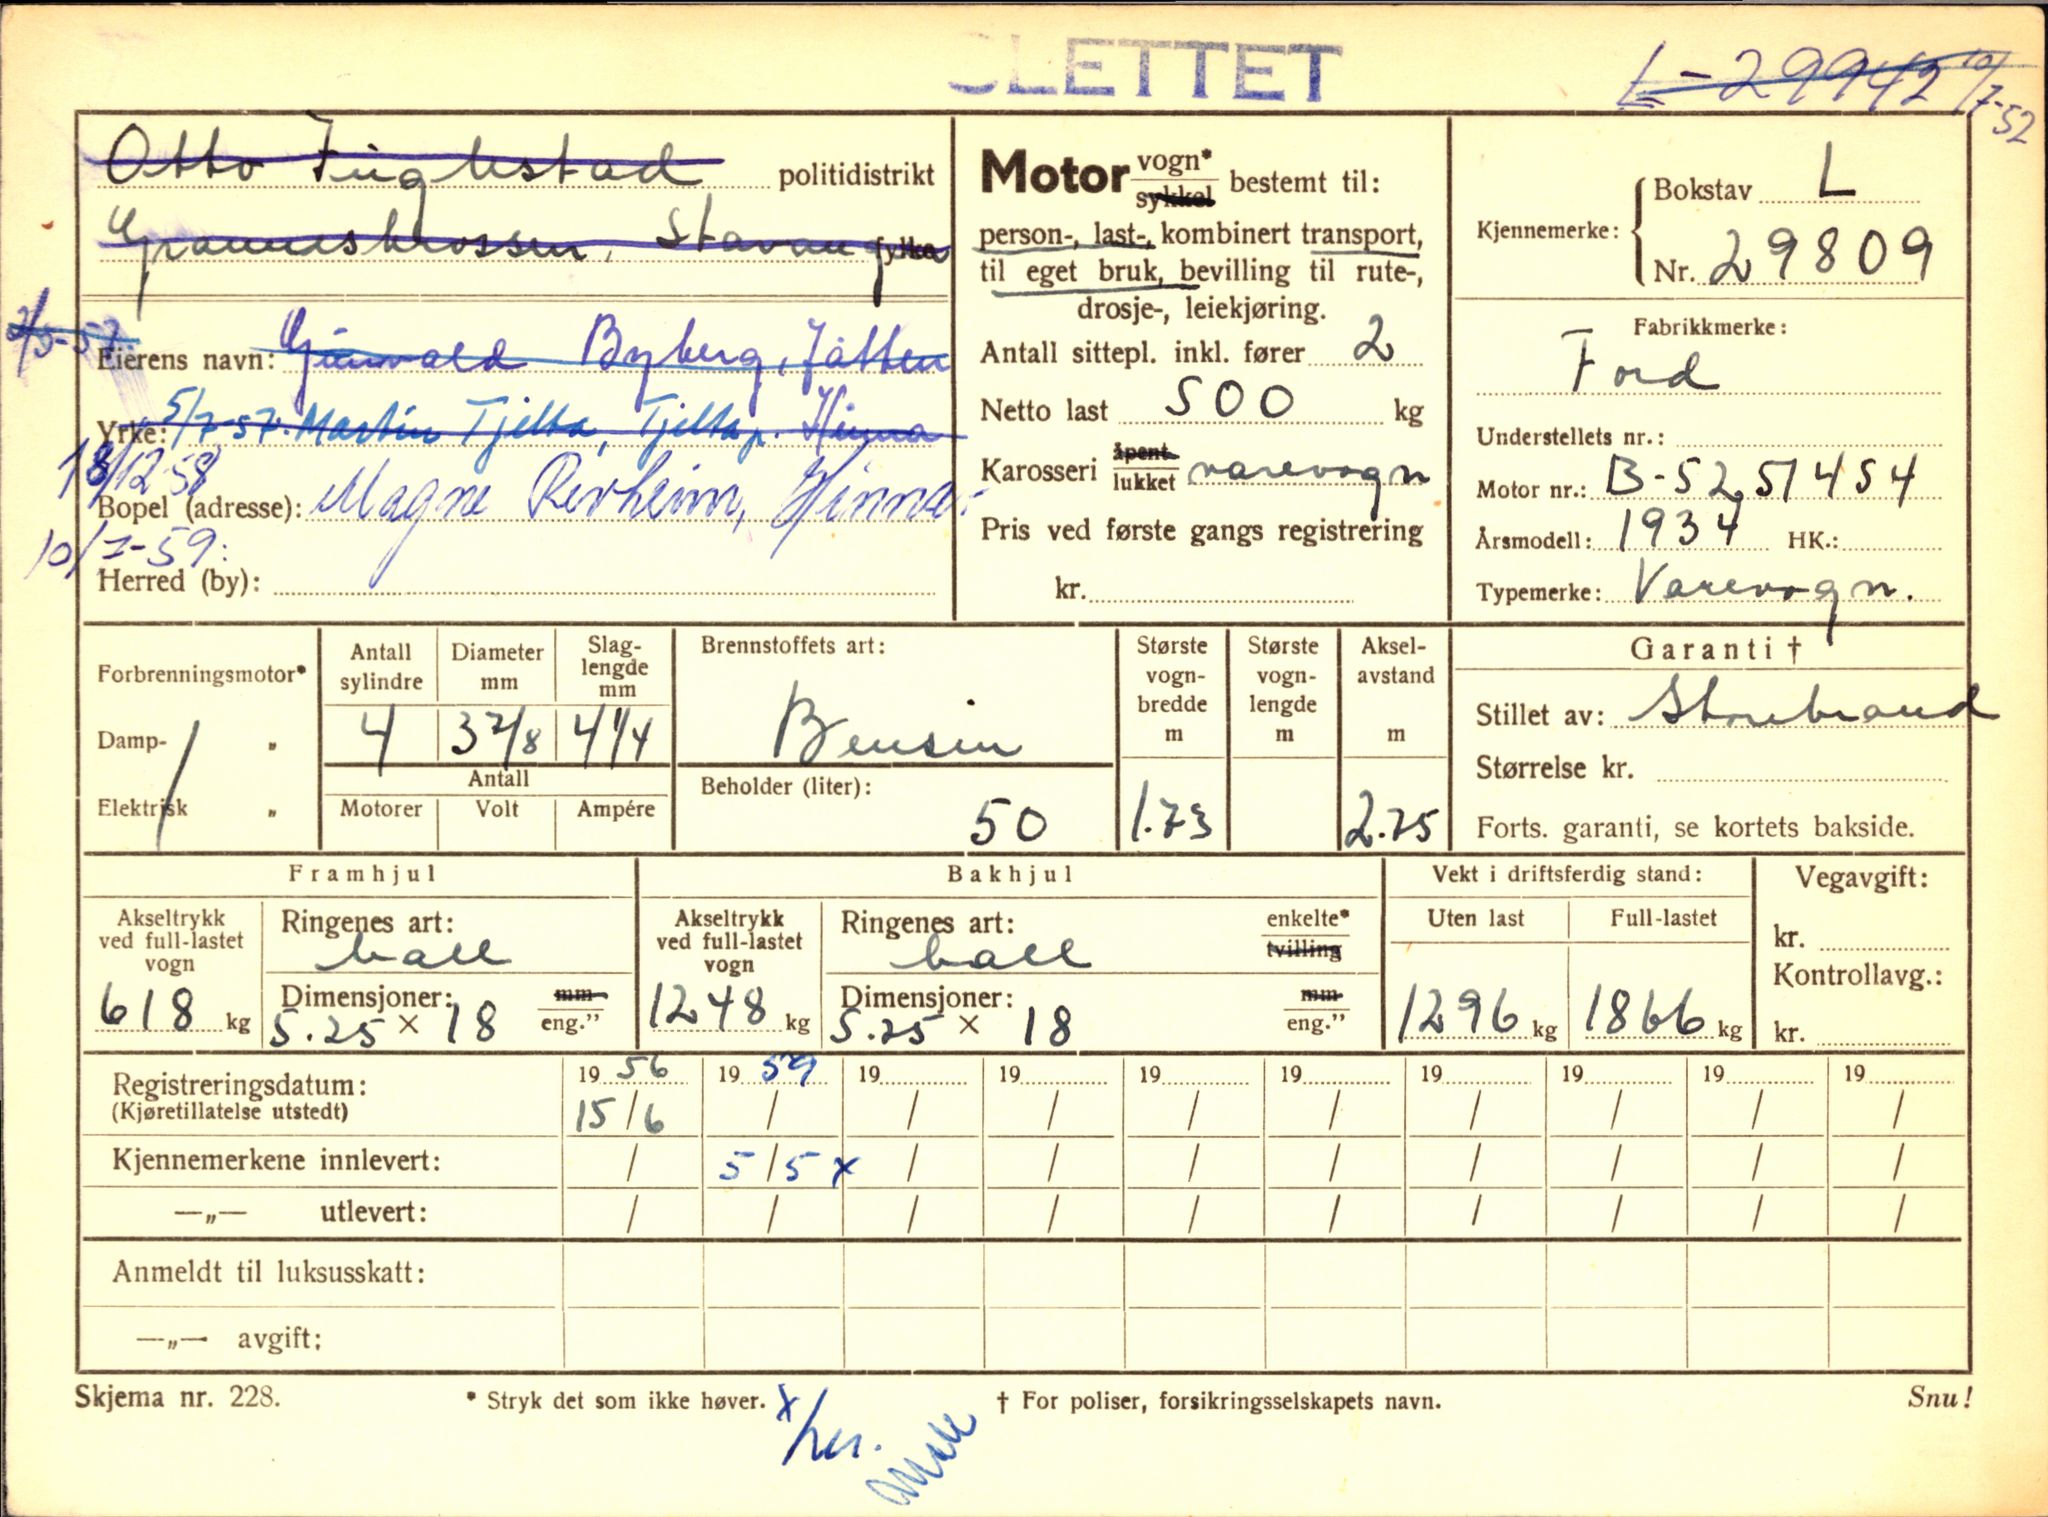 SLETTET
L-29942 10/7-52
Otto politidistrikt
Stavanger fylke
2/5-57
Eierens navn: Byberg, Jåtten
Yrke: 5/7-57. Martin Tjelta, Tjelta p. Hinna
18/12-58
Bopel (adresse): Magne Revheim, Hinna.
10/7-59:
Herred (by):
Motor vogn* sykkel bestemt til:
person-, last-, kombinert transport,
til eget bruk, bevilling til rute-,
drosje-, leiekjøring.
Antall sittepl. inkl. fører 2
Netto last 500 kg
Karosseri åpent lukket varevogn
Pris ved første gangs registrering
kr.
Kjennemerke: Bokstav L
Nr. 29809
Fabrikkmerke:
Ford
Understellets nr.:
Motor nr.: B-5251454
Årsmodell: 1934 HK.:
Typemerke: Varevogn.
Forbrenningsmotor*
Damp- „
Elektrisk „
Antall sylindre
4
Diameter mm
3 7/8
Slag-
lengde
mm
4 1/4
Antall
Motorer Volt Ampére
Brennstoffets art:
Bensin
Beholder (liter):
50
Største
vogn-
bredde
m
1.73
Største
vogn-
lengde
m
Aksel-
avstand
m
2.75
Garanti †
Stillet av: Storebrand
Størrelse kr.
Forts. garanti, se kortets bakside.
Framhjul
Akseltrykk
ved full-lastet
vogn
618 kg
Ringenes art:
ball
Dimensjoner: mm
5.25 × 18 eng.”
Bakhjul
Akseltrykk
ved full-lastet
vogn
1248 kg
Ringenes art: enkelte*
ball tvilling
Dimensjoner: mm
5.25 × 18 eng.”
Vekt i driftsferdig stand:
Uten last Full-lastet
1296 kg 1866 kg
Vegavgift:
kr.
Kontrollavg.:
kr.
Registreringsdatum: 19 56 19 59 19 19 19 19 19 19 19 19
(Kjøretillatelse utstedt) 15/6 / / / / / / / / /
Kjennemerkene innlevert: / 5/5 x / / / / / / / /
—„— utlevert: / / / / / / / / / /
Anmeldt til luksusskatt:
—„— avgift:
Skjema nr. 228. * Stryk det som ikke høver. † For poliser, forsikringsselskapets navn. Snu!
x